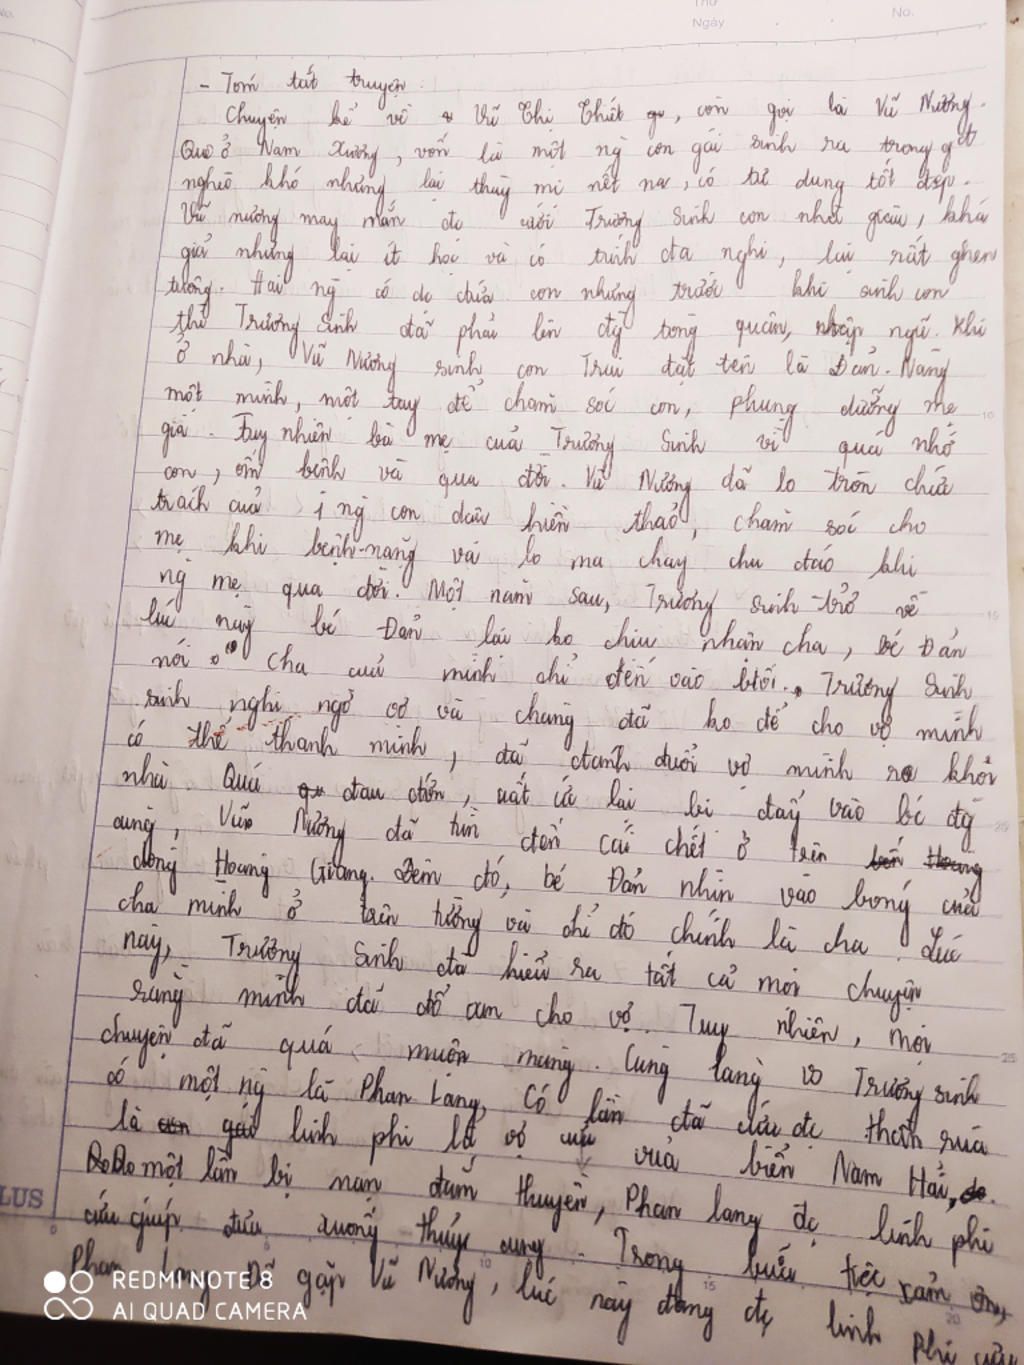 No.
Thứ
Ngày
No.
- Tóm tắt truyện.
Chuyện kể về Vũ Thị Thiết, còn gọi là Vũ Nương.
Quê ở Nam Xương, vốn là một ng con gái sinh ra trong gđ
nghèo khó nhưng lại thùy mị nết na, có tư dung tốt đẹp.
Vũ nương may mắn đc cưới Trương Sinh con nhà giàu, khá
giả nhưng lại ít học và có tính đa nghi, lại rất ghen
tuông. Hai ng có đc đứa con nhưng trước khi sinh con
thì Trương Sinh đã phải lên đg tòng quân, nhập ngũ. Khi
ở nhà, Vũ Nương sinh con Trai đặt tên là Đản. Nàng
một mình, một tay để chăm sóc con, phụng dưỡng mẹ
già. Tuy nhiên bà mẹ của Trương Sinh vì quá nhớ
con, ốm bệnh và qua đời. Vũ Nương đã lo tròn chức
trách của 1 ng con dâu hiền thảo, chăm sóc cho
mẹ khi bệnh nặng và lo ma chay chu đáo khi
ng mẹ qua đời. Một năm sau, Trương sinh trở về
lúc này bé Đản lại ko chịu nhận cha, bé Đản
nói cha của mình chỉ đến vào btối. Trương Sinh
sinh nghi ngờ vợ và chàng đã ko để cho vợ mình
có thể thanh minh, đã đánh đuổi vợ mình ra khỏi
nhà. Quá đau đớn, uất ức lại bị đẩy vào bc đg
cùng, Vũ Nương đã tìn đến cái chết ở trên
dòng Hoàng Giang. Đêm đó, bé Đản nhìn vào bóng của
cha mình ở trên tường và chỉ đó chính là cha. Lúc
này, Trương Sinh đã hiểu ra tất cả mọi chuyện
rằng mình đã đổ oan cho vợ. Tuy nhiên, mọi
chuyện đã quá muộn màng. Cùng làng vs Trương sinh
có một ng là Phan Lang, Có lần đã cứu đc thần rùa
là linh phi là vợ của vua biển Nam Hải,
Do một lần bị nạn đắm thuyền, Phan lang đc linh phi
cứu giúp đưa xuống thủy cung. Trong bữa tiệc cảm ơn,
Phan Lang Đã gặp Vũ Nương, lúc này đang đc linh Phi cứu
10
15
20
25
LUS
0
5
10
15
20
REDMI NOTE 8
AI QUAD CAMERA